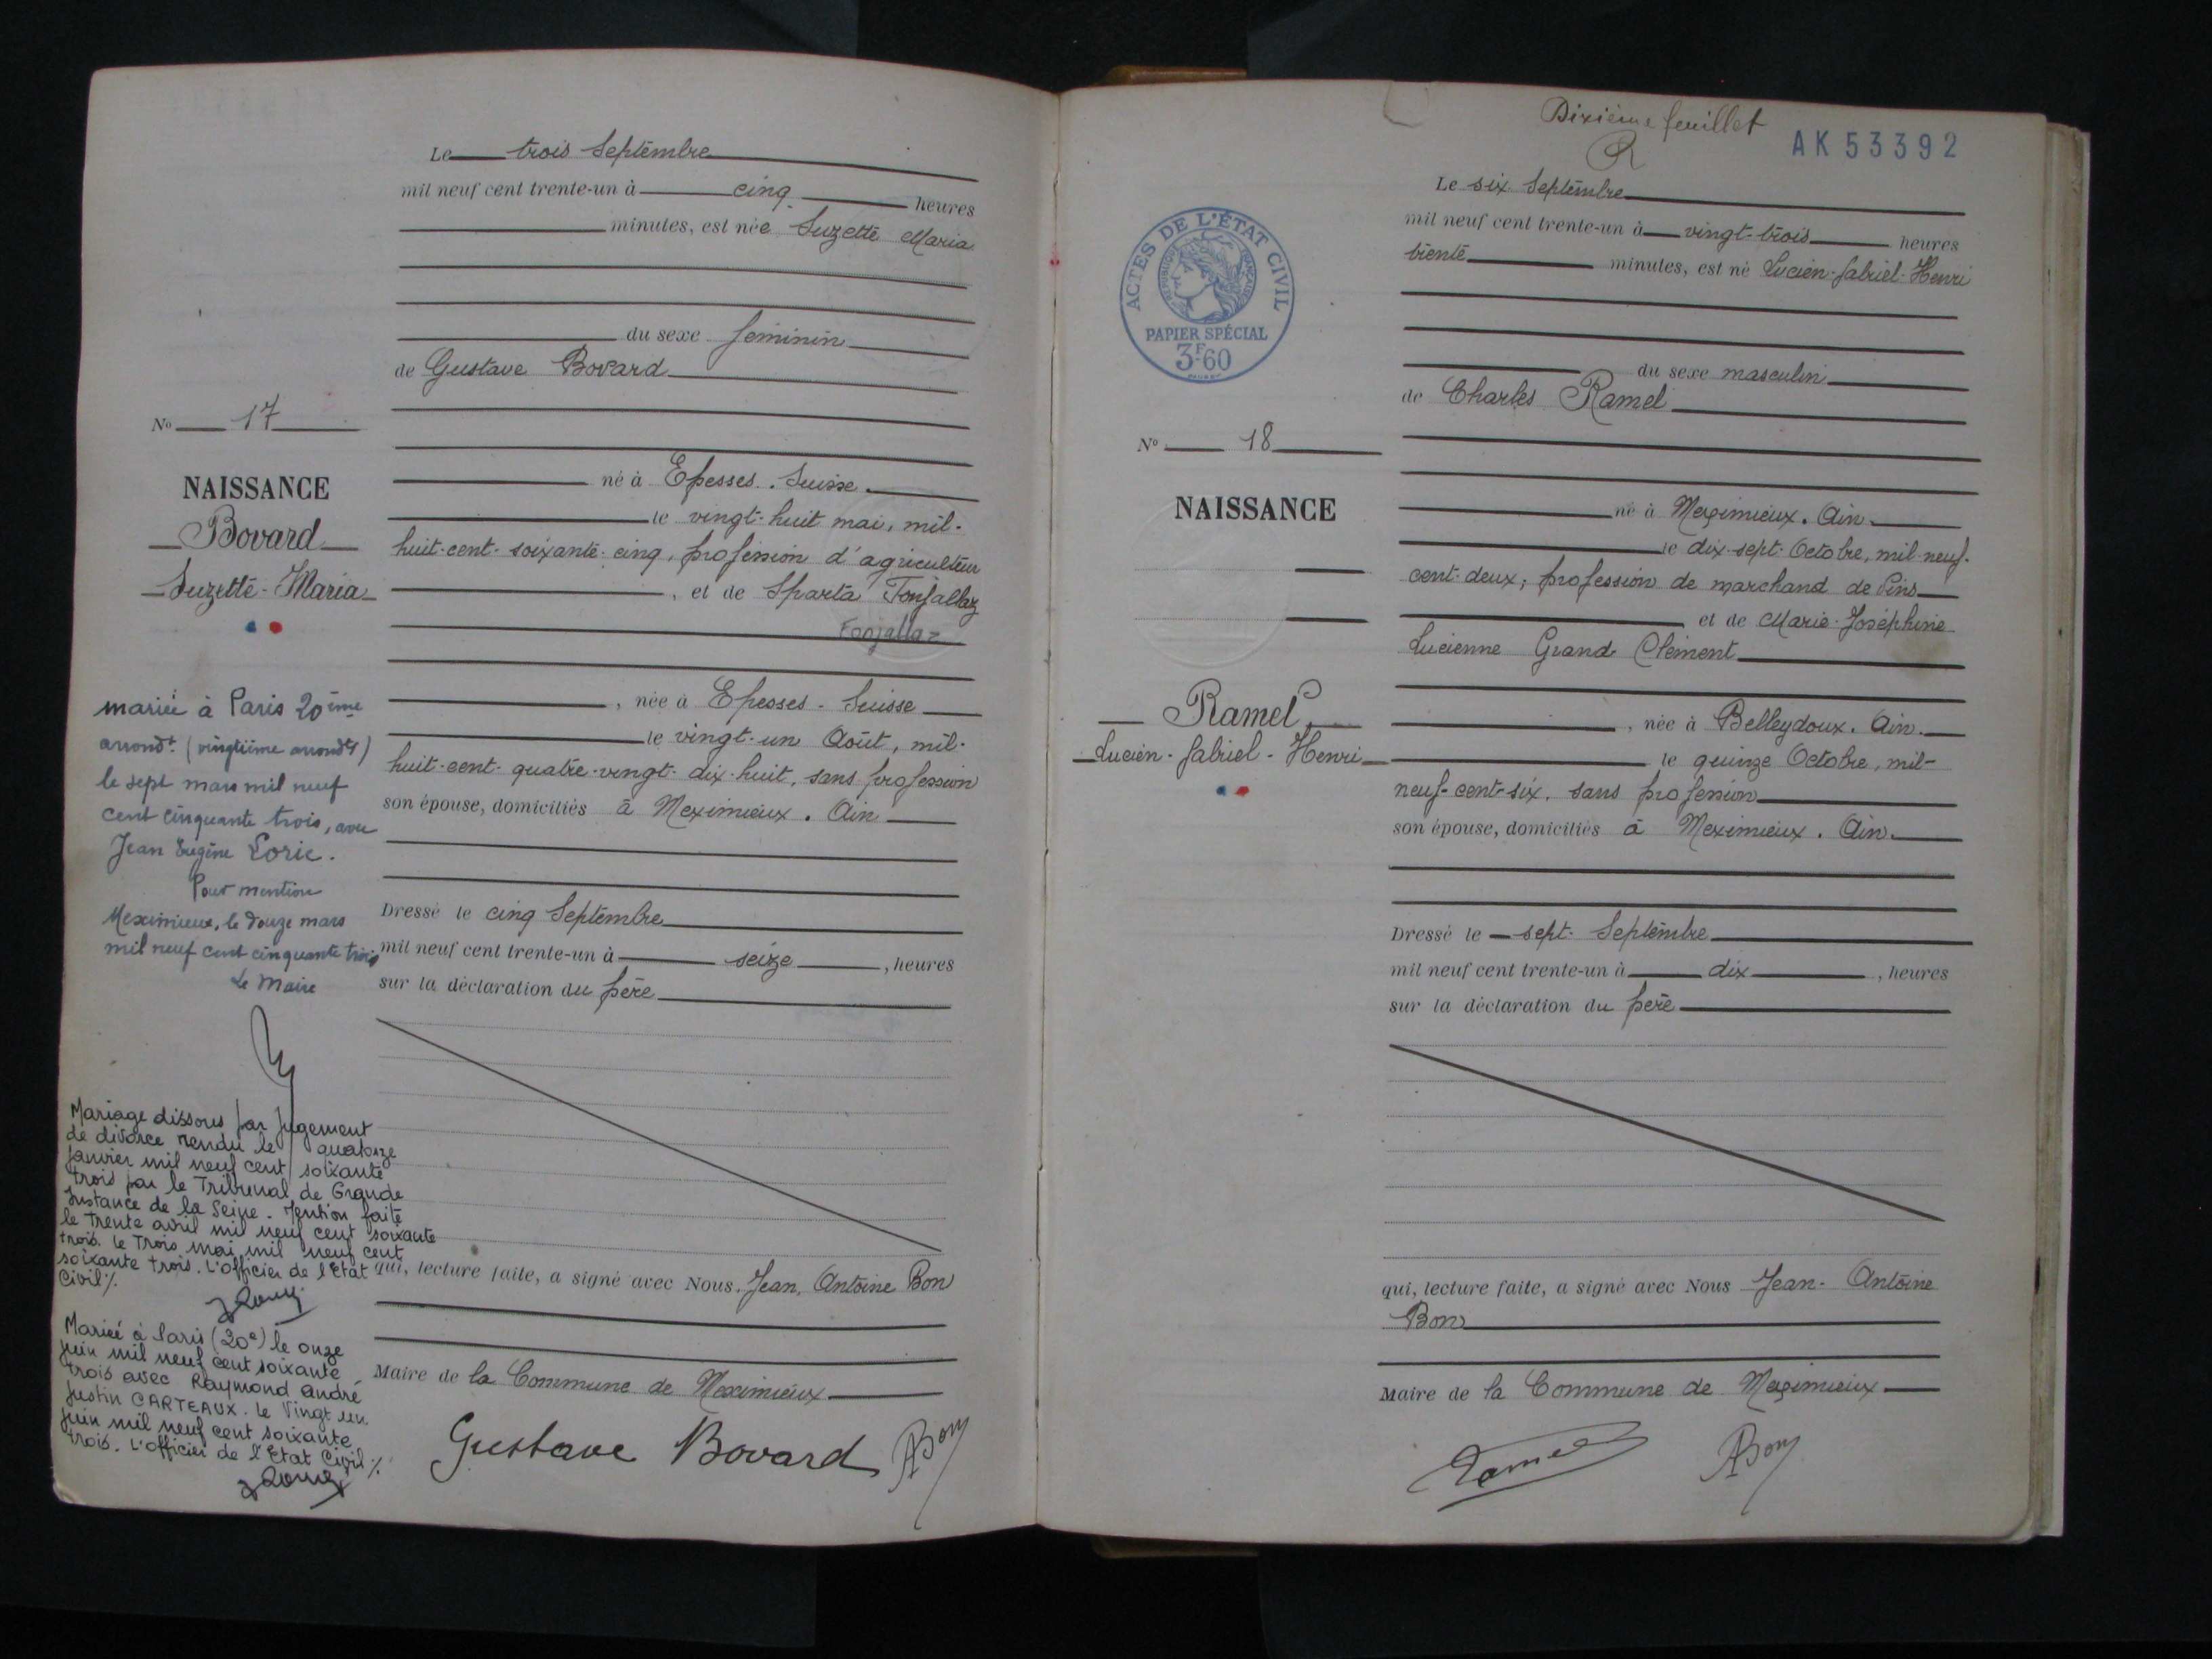 Le trois Septembre
mil neuf cent trente-un à cinq heures
minutes, est née Suzette Maria
du sexe féminin
de Gustave Bovard
No 17
NAISSANCE
Bovard
Suzette-Maria
né à Epesses. Suisse.
le vingt-huit mai, mil-
huit-cent-soixante-cinq, profession d'agriculteur
, et de Sparta Fonjallaz
Fonjallaz
, née à Epesses - Suisse
le vingt-un Août, mil-
huit-cent-quatre-vingt-dix-huit, sans profession
son épouse, domiciliés à Meximieux. Ain
Dressé le cinq Septembre
mil neuf cent trente-un à seize, heures
sur la déclaration du père
qui, lecture faite, a signé avec Nous. Jean, Antoine Bon
Maire de la Commune de Meximieux
Gustave Bovard ABon
mariée à Paris 20ème
arrondt (vingtième arrondt)
le sept mars mil neuf
cent cinquante trois, avec
Jean Eugène Loric.
Pour mention
Meximieux, le douze mars
mil neuf cent cinquante trois
Le Maire
Mariage dissous par jugement
de divorce rendu le quatorze
janvier mil neuf cent soixante
trois par le Tribunal de Grande
Instance de la Seine. Mention faite
le Trente avril mil neuf cent soixante
trois. Le Trois mai mil neuf cent
soixante trois. L'officier de l'Etat
Civil ./.
Mariée à Paris (20e) le onze
juin mil neuf cent soixante
trois avec Raymond André
Justin CARTEAUX. Le Vingt un
juin mil neuf cent soixante
trois. L'officier de l'Etat Civil ./.
Dixième feuillet
AK53392
ACTES DE L'ÉTAT CIVIL
RÉPUBLIQUE FRANÇAISE
PAPIER SPÉCIAL
3F60
Le six Septembre
mil neuf cent trente-un à vingt-trois heures
trente minutes, est né Lucien-Gabriel-Henri
du sexe masculin
de Charles Ramel
No 18
NAISSANCE
né à Meximieux. Ain.
le dix-sept Octobre, mil-neuf-
cent-deux; profession de marchand de vins
et de Marie-Joséphine
Lucienne Grand Clément
Ramel
Lucien-Gabriel-Henri
, née à Belleydoux. Ain.
le quinze Octobre, mil-
neuf-cent-six. sans profession
son épouse, domiciliés à Meximieux. Ain.
Dressé le sept Septembre
mil neuf cent trente-un à dix, heures
sur la déclaration du père
qui, lecture faite, a signé avec Nous Jean-Antoine
Bon
Maire de la Commune de Meximieux
Ramel ABon